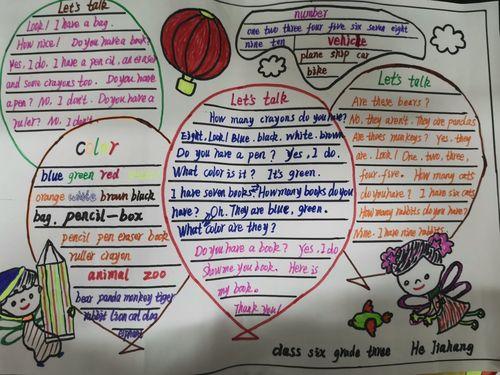 Let's talk
Look! I have a bag.
How nice! Do you have a book?
Yes, I do. I have a pencil, an eraser
and some crayons too. Do you have
a pen? No. I don't. Do you have a
ruler? No. I don't.
number
one two three four five six seven eight
nine ten
vehicle
plane ship car
bike
color
blue green red
orange white brown black
bag. pencil-box
pencil pen eraser book
ruler crayon
animal zoo
bear panda monkey tiger
rabbit lion cat dog
Let's talk
How many crayons do you have?
Eight. Look! Blue. black. white. brown
Do you have a pen? Yes, I do.
What color is it? It's green.
I have seven books. How many books do you
have? Oh. They are blue, green.
What color are they?
Do you have a book? Yes. I do
Show me you book. Here is
my book.
Thank you!
Let's talk
Are these bears?
No. they aren't. They are pandas
Are thoes monkeys? Yes. they
are. Look! One, two, three,
four, five. How many cats
do you have? I have six cats
How many rabbits do you have?
Nine. I have nine rabbits.
class six grade three He Jiahang